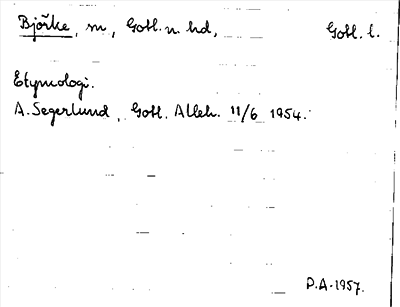 Björke, m, Gotl. n. hd, Gotl. l.
Etymologi.
A. Segerlund, Gotl. Alleh. 11/6 1954.
P.A. 1957.